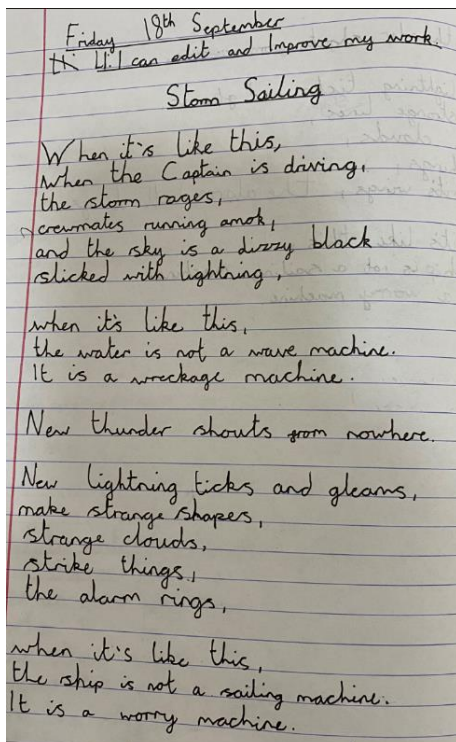 Friday 18th September
LI: I can edit and Improve my work.
Storm Sailing
When it's like this,
when the Captain is driving,
the storm rages,
crewmates running amok,
and the sky is a dizzy black
slicked with lightning,
when it's like this,
the water is not a wave machine.
It is a wreckage machine.
New thunder shouts from nowhere.
New lightning ticks and gleams,
make strange shapes,
strange clouds,
strike things,
the alarm rings,
when it's like this,
the ship is not a sailing machine.
It is a worry machine.